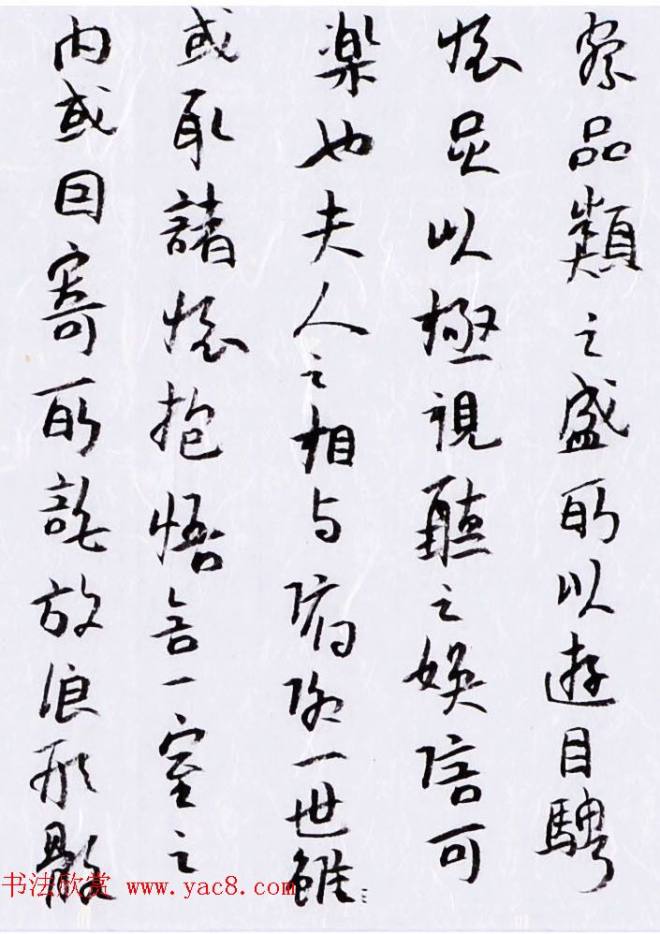 察品類之盛所以遊目騁
懷足以極視聽之娛信可
樂也夫人之相与俯仰一世雖
或取諸懷抱悟言一室之
内或因寄所託放浪形骸
书法欣赏 www.yac8.com